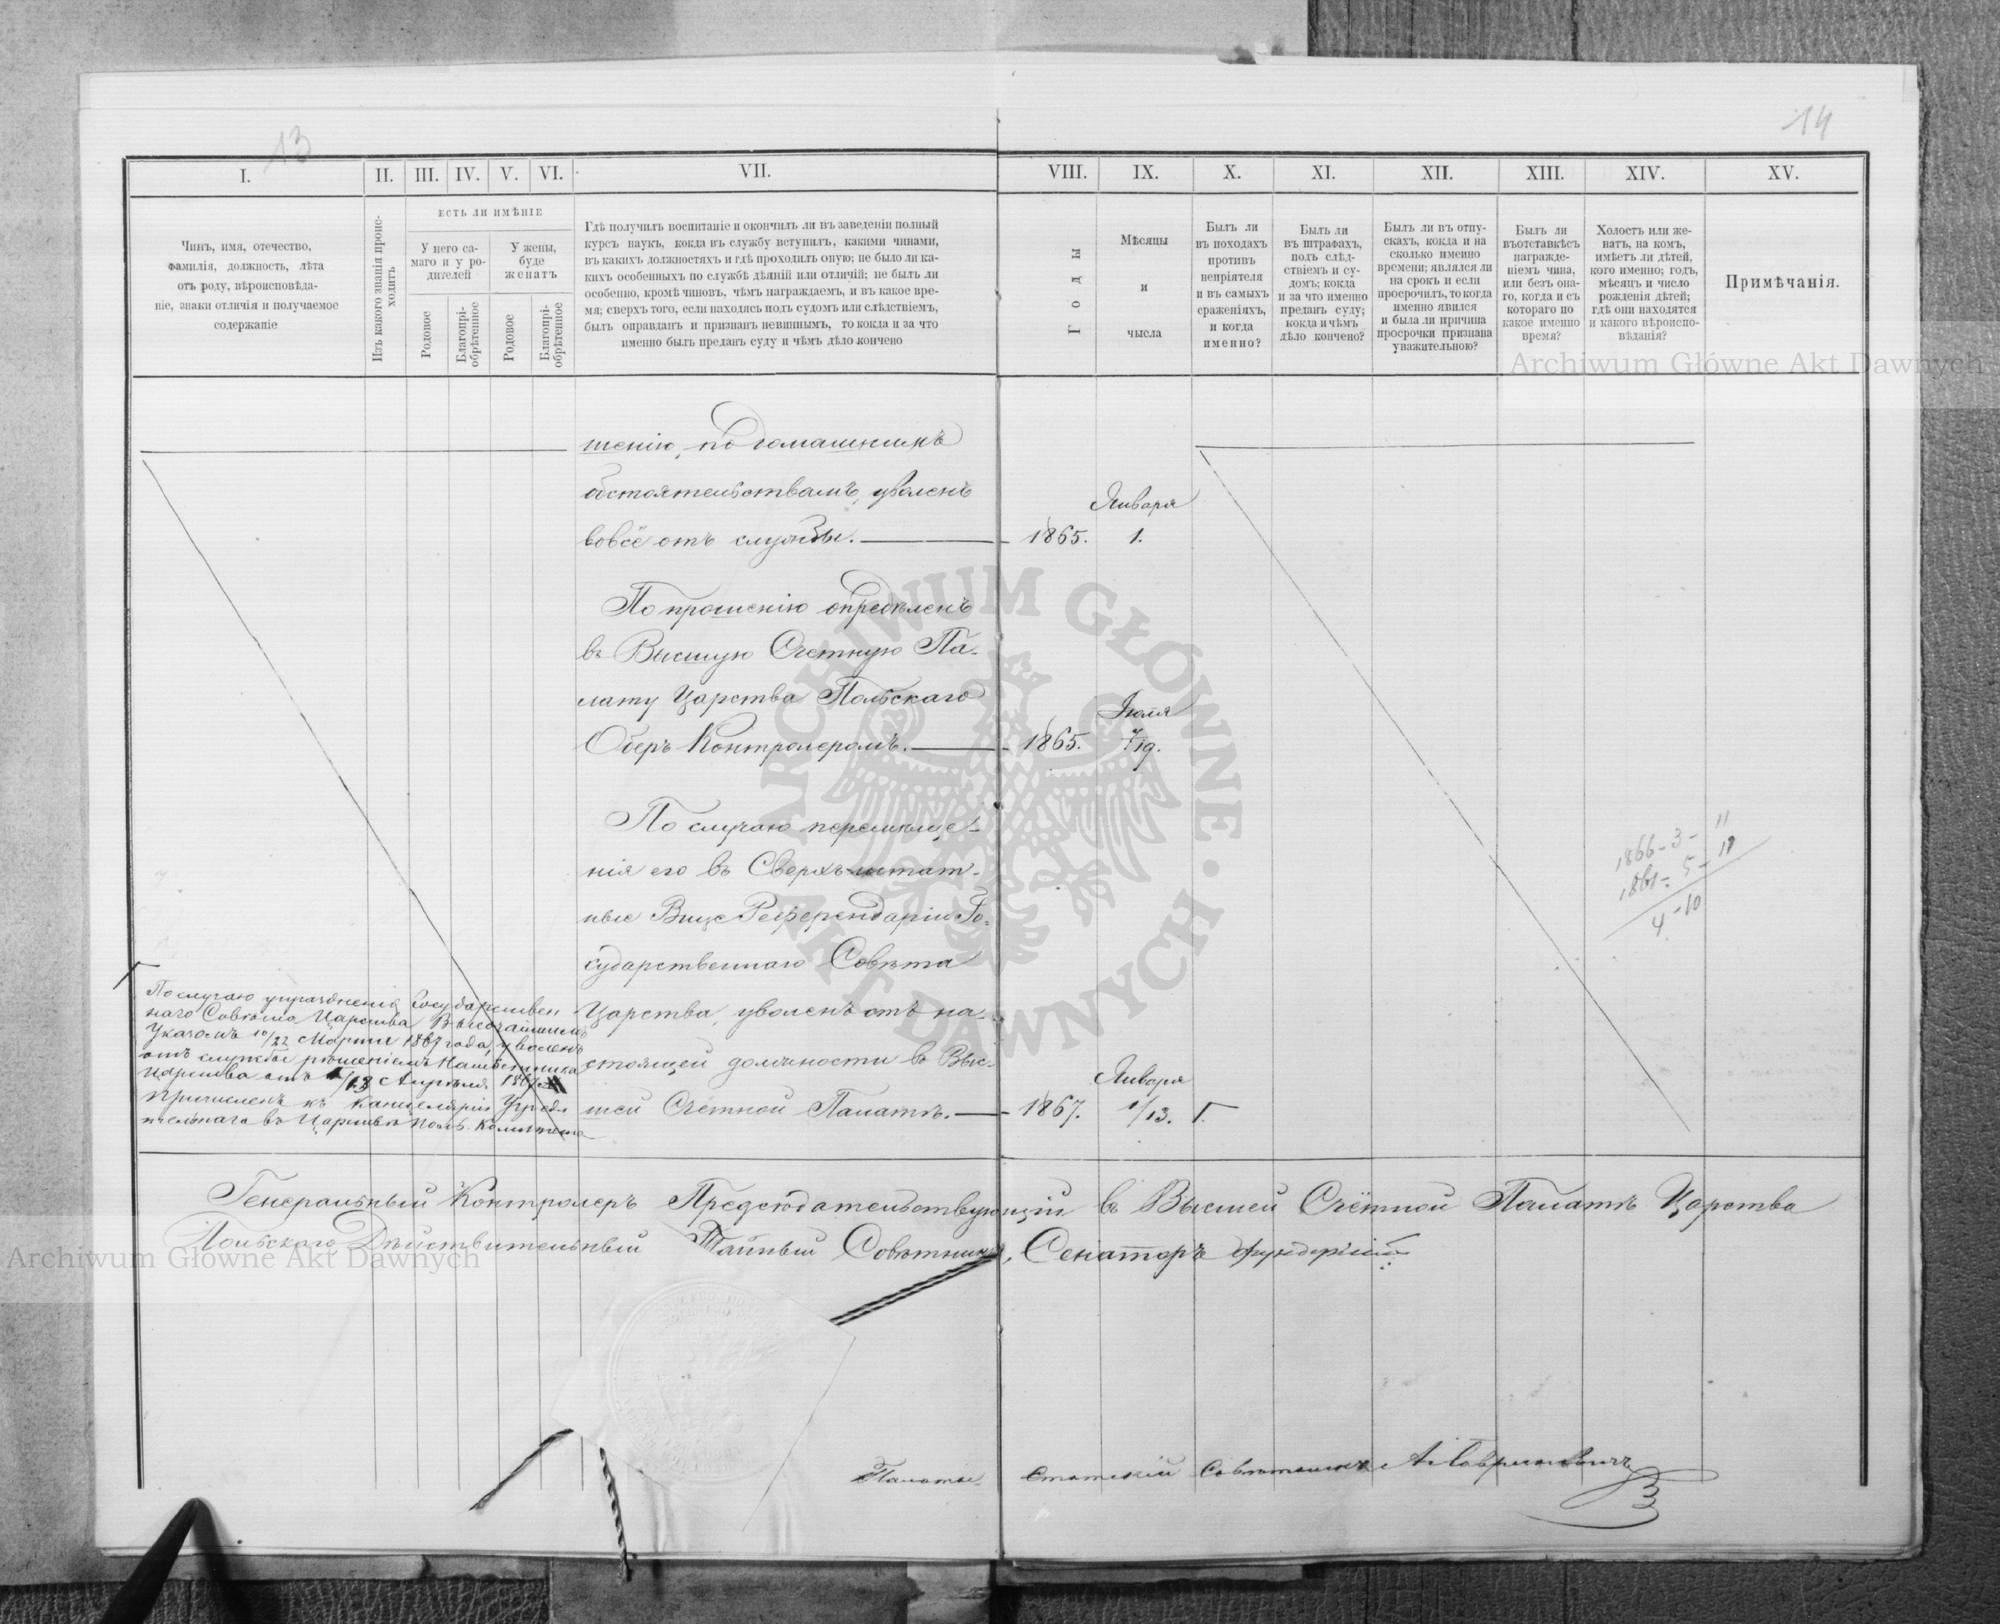 13
14
I.
II.
III.
IV.
V.
VI.
VII.
VIII.
IX.
X.
XI.
XII.
XIII.
XIV.
XV.
Чинъ, имя, отечество,
фамилія, должность, лѣта
отъ роду, вѣроисповѣда-
ніе, знаки отличія и получаемое
содержаніе
Изъ какого званія проис-
ходитъ
ЕСТЬ ЛИ ИМѢНІЕ
У него са-
маго и у ро-
дителей
У жены,
буде
женатъ
Родовое
Благопрі-
обрѣтенное
Родовое
Благопрі-
обрѣтенное
Гдѣ получилъ воспитаніе и окончилъ ли въ заведеніи полный
курсъ наукъ, кокда въ службу вступилъ, какими чинами,
въ какихъ должностяхъ и гдѣ проходилъ оную; не было ли ка-
кихъ особенныхъ по службѣ дѣяній или отличій; не былъ ли
особенно, кромѣ чиновъ, чѣмъ награждаемъ, и въ какое вре-
мя; сверхъ того, если находясь подъ судомъ или слѣдствіемъ,
былъ оправданъ и признанъ невиннымъ, то кокда и за что
именно былъ преданъ суду и чѣмъ дѣло кончено
Годы
Мѣсяцы
и
числа
Былъ ли
въ походахъ
противъ
непріятеля
и въ самыхъ
сраженіяхъ,
и когда
именно?
Былъ ли
въ штрафахъ,
подъ слѣд-
ствіемъ и су-
домъ; кокда
и за что именно
преданъ суду;
кокда и чѣмъ
дѣло кончено?
Былъ ли въ отпу-
скахъ, кокда и на
сколько именно
времени; являлся ли
на срокъ и если
просрочилъ, то когда
именно явился
и была ли причина
просрочки признана
уважительною?
Былъ ли
въотставкѣсъ
награжде-
ніемъ чина,
или безъ она-
го, когда и съ
котораго по
какое именно
время?
Холостъ или же-
натъ, на комъ,
имѣетъ ли дѣтей,
кого именно; годъ,
мѣсяцъ и число
рожденія дѣтей;
гдѣ они находятся
и какого вѣроиспо-
вѣданія?
Примѣчанія.
Archiwum Główne Akt Dawnych
шенію, по домашнимъ
обстоятельствамъ, уволенъ
вовсе отъ службы.
1865.
Января
1.
По прошенію опредѣленъ
въ Высшую Счетную Па-
лату Царства Польскаго
Оберъ Контролеромъ.
1865.
Іюля
7/19.
По случаю перемѣще-
нія его въ Сверхъ-штат-
ные Вице Референдаріи Го-
сударственнаго Совѣта
Царства, уволенъ отъ на-
стоящей должности въ Выс-
шей Счётной Палатѣ.
1867.
Января
1/13.
По случаю упраздненія Государствен
наго Совѣта Царства Высочайшимъ
Указомъ 10/22 Марта 1867 года, уволенъ
отъ службы рѣшеніемъ Намѣстника
Царства отъ 1/13 Апрѣля
Причисленъ къ Канцеляріи Учреди
тельнаго въ Царствѣ Поль. Комитета
1866-3-11
1861-5-
4-10
Генеральный Контролеръ Предсѣдательствующій въ Высшей Счётной Палатѣ Царства
Польскаго Дѣйствительный Тайный Совѣтникъ, Сенаторъ
Archiwum Główne Akt Dawnych
Палаты Статскій Совѣтникъ
ARCHIWUM GŁÓWNE · AKT DAWNYCH ·